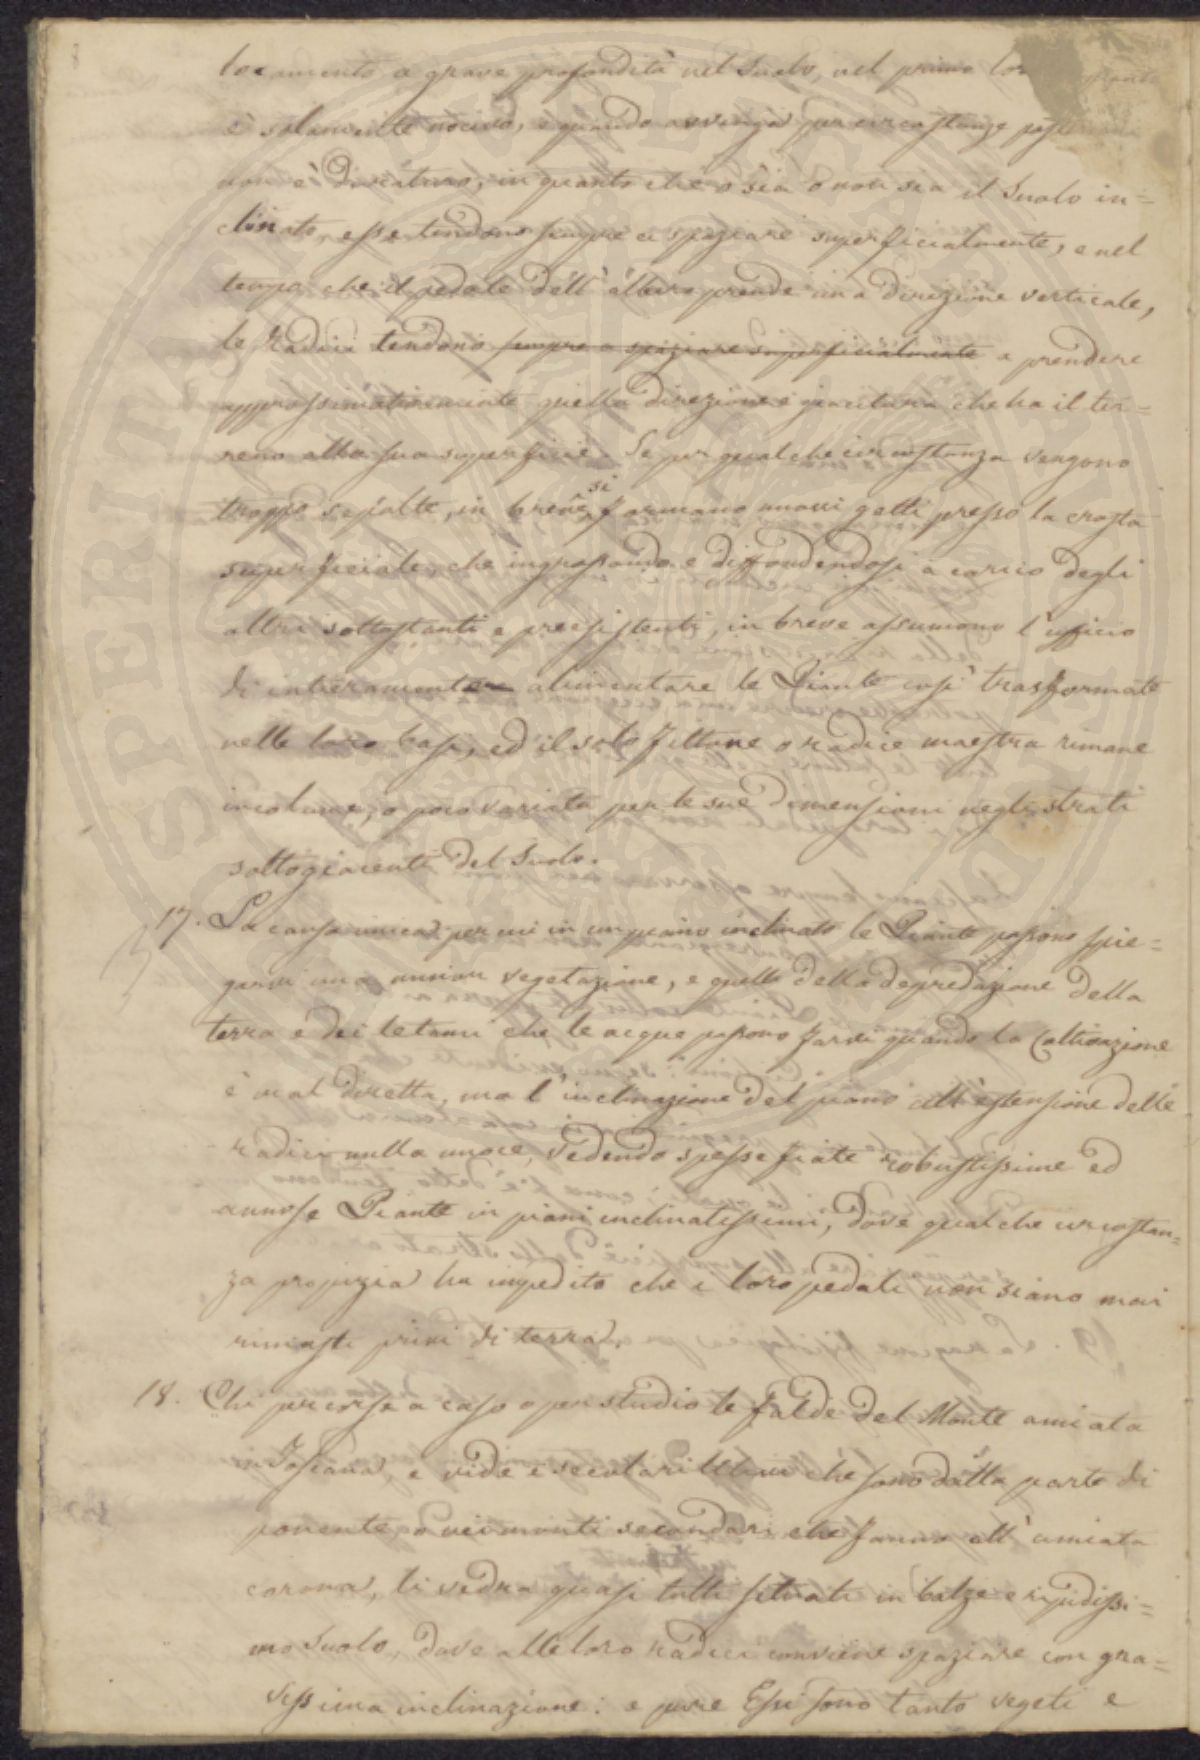 8
locamento a grave profondità nel Suolo, nel primo loro
è solamente nocivo, e quando avvenga per circostanze
non è duraturo, in quanto che o sia o non sia il Suolo in=
clinato, esse tendono sempre a spaziare superficialmente, e nel
tempo che il pedale dell'albero prende una direzione verticale,
le Radici tendono sempre a spaziare superficialmente a prendere
approssimativamente quella direzione e giacitura che ha il ter=
reno alla sua superficie. Se per qualche circostanza vengono
troppo sepolte, in breve si formano nuovi getti presso la crosta
superficiale, che ingrossando e diffondendosi a carico degli
altri sottostanti e preesistenti, in breve assumono l'ufficio
di intieramente alimentare le Piante così trasformate
nelle loro basi, ed il solo fittone o radice maestra rimane
incolume, o poco variata per le sue dimensioni negli strati
sottogiacenti del Suolo.
17. La causa unica per cui in un piano inclinato le Piante possono spie=
garvi una minor vegetazione, è quella della depredazione della
terra e dei letami che le acque possono farvi quando la Coltivazione
è mal diretta, ma l'inclinazione del piano all'estensione delle
radici nulla nuoce, vedendo spesse fiate robustissime ed
annose Piante in piani inclinatissimi, dove qualche circostan=
za propizia ha impedito che i loro pedali non siano mai
rimasti privi di terra.
18. Chi percorse a caso o per studio le falde del Monte amiata
in Toscana, e vide i secolari Ulivi che sono dalla parte di
ponente o nei monti secondari che fanno all'amiata
corona, li vedrà quasi tutti situati in balze e ripidissi=
mo Suolo, dove alle loro radici conviene spaziare con gra=
vissima inclinazione: e pure Essi sono tanto vegeti e